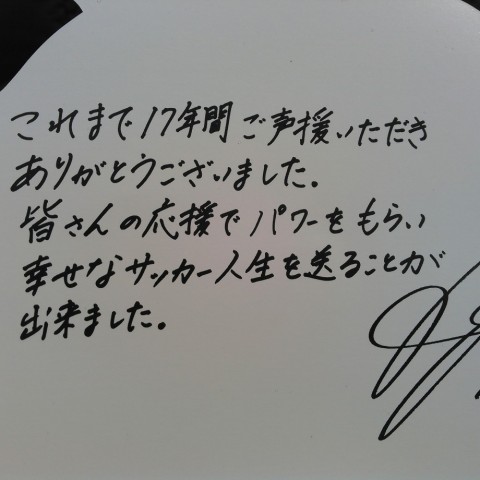 これまで17年間ご声援いただき
ありがとうございました。
皆さんの応援でパワーをもらい
幸せなサッカー人生を送ることが
出来ました。